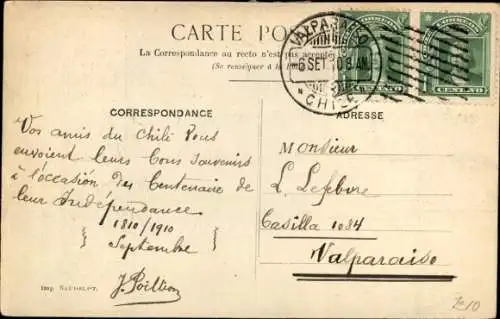 CARTE
La Correspondance au recto n'est pas accepté
(Se renseigner à la
VALPARAISO
6 SET 10 8 AM
CHILE
CORREOS
CENTAVO
CENTAVO
CORRESPONDANCE
ADRESSE
Vos amis du Chili Vous
envoient leurs bons souvenirs
à l'occasion du Centenaire de
leur Indépendance
1810/1910
Septembre
J. Poillion
Imp.
Monsieur
L. Lefebvre
Casilla 1084
Valparaiso